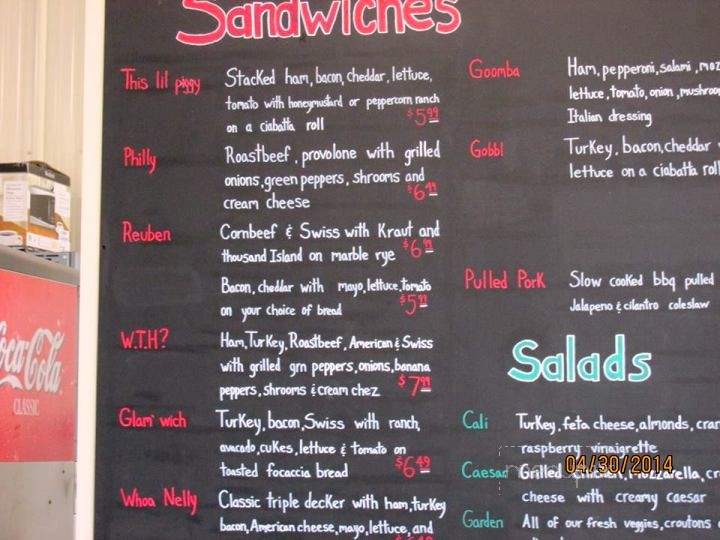 Sandwiches
This lil piggy
Stacked ham, bacon, cheddar, lettuce,
tomato with honeymustard or peppercorn ranch
on a ciabatta roll $5.99
Philly
Roastbeef, provolone with grilled
onions, green peppers, shrooms and
cream cheese $6.49
Reuben
Cornbeef & Swiss with Kraut and
thousand Island on marble rye $6.99
Bacon, cheddar with mayo, lettuce, tomato
on your choice of bread $5.99
W.T.H?
Ham, Turkey, Roastbeef, American & Swiss
with grilled grn peppers, onions, banana
peppers, shrooms & cream chez $7.99
Glam' wich
Turkey, bacon, Swiss with ranch,
avacado, cukes, lettuce & tomato on
toasted focaccia bread $6.49
Whoa Nelly
Classic triple decker with ham, turkey
bacon, American cheese, mayo, lettuce, and
Goomba
Ham, pepperoni, salami,
lettuce, tomato, onion,
Italian dressing
Gobbl
Turkey, bacon, cheddar
lettuce on a ciabatta roll
Pulled Pork
Slow cooked bbq pulled
Jalapeno & cilantro coleslaw
Salads
Cali
Turkey, feta cheese, almonds,
raspberry vinaigrette
Caesar
Grilled chicken, mozzarella,
cheese with creamy caesar
Garden
All of our fresh veggies, croutons
Coca-Cola
CLASSIC
04/30/2014